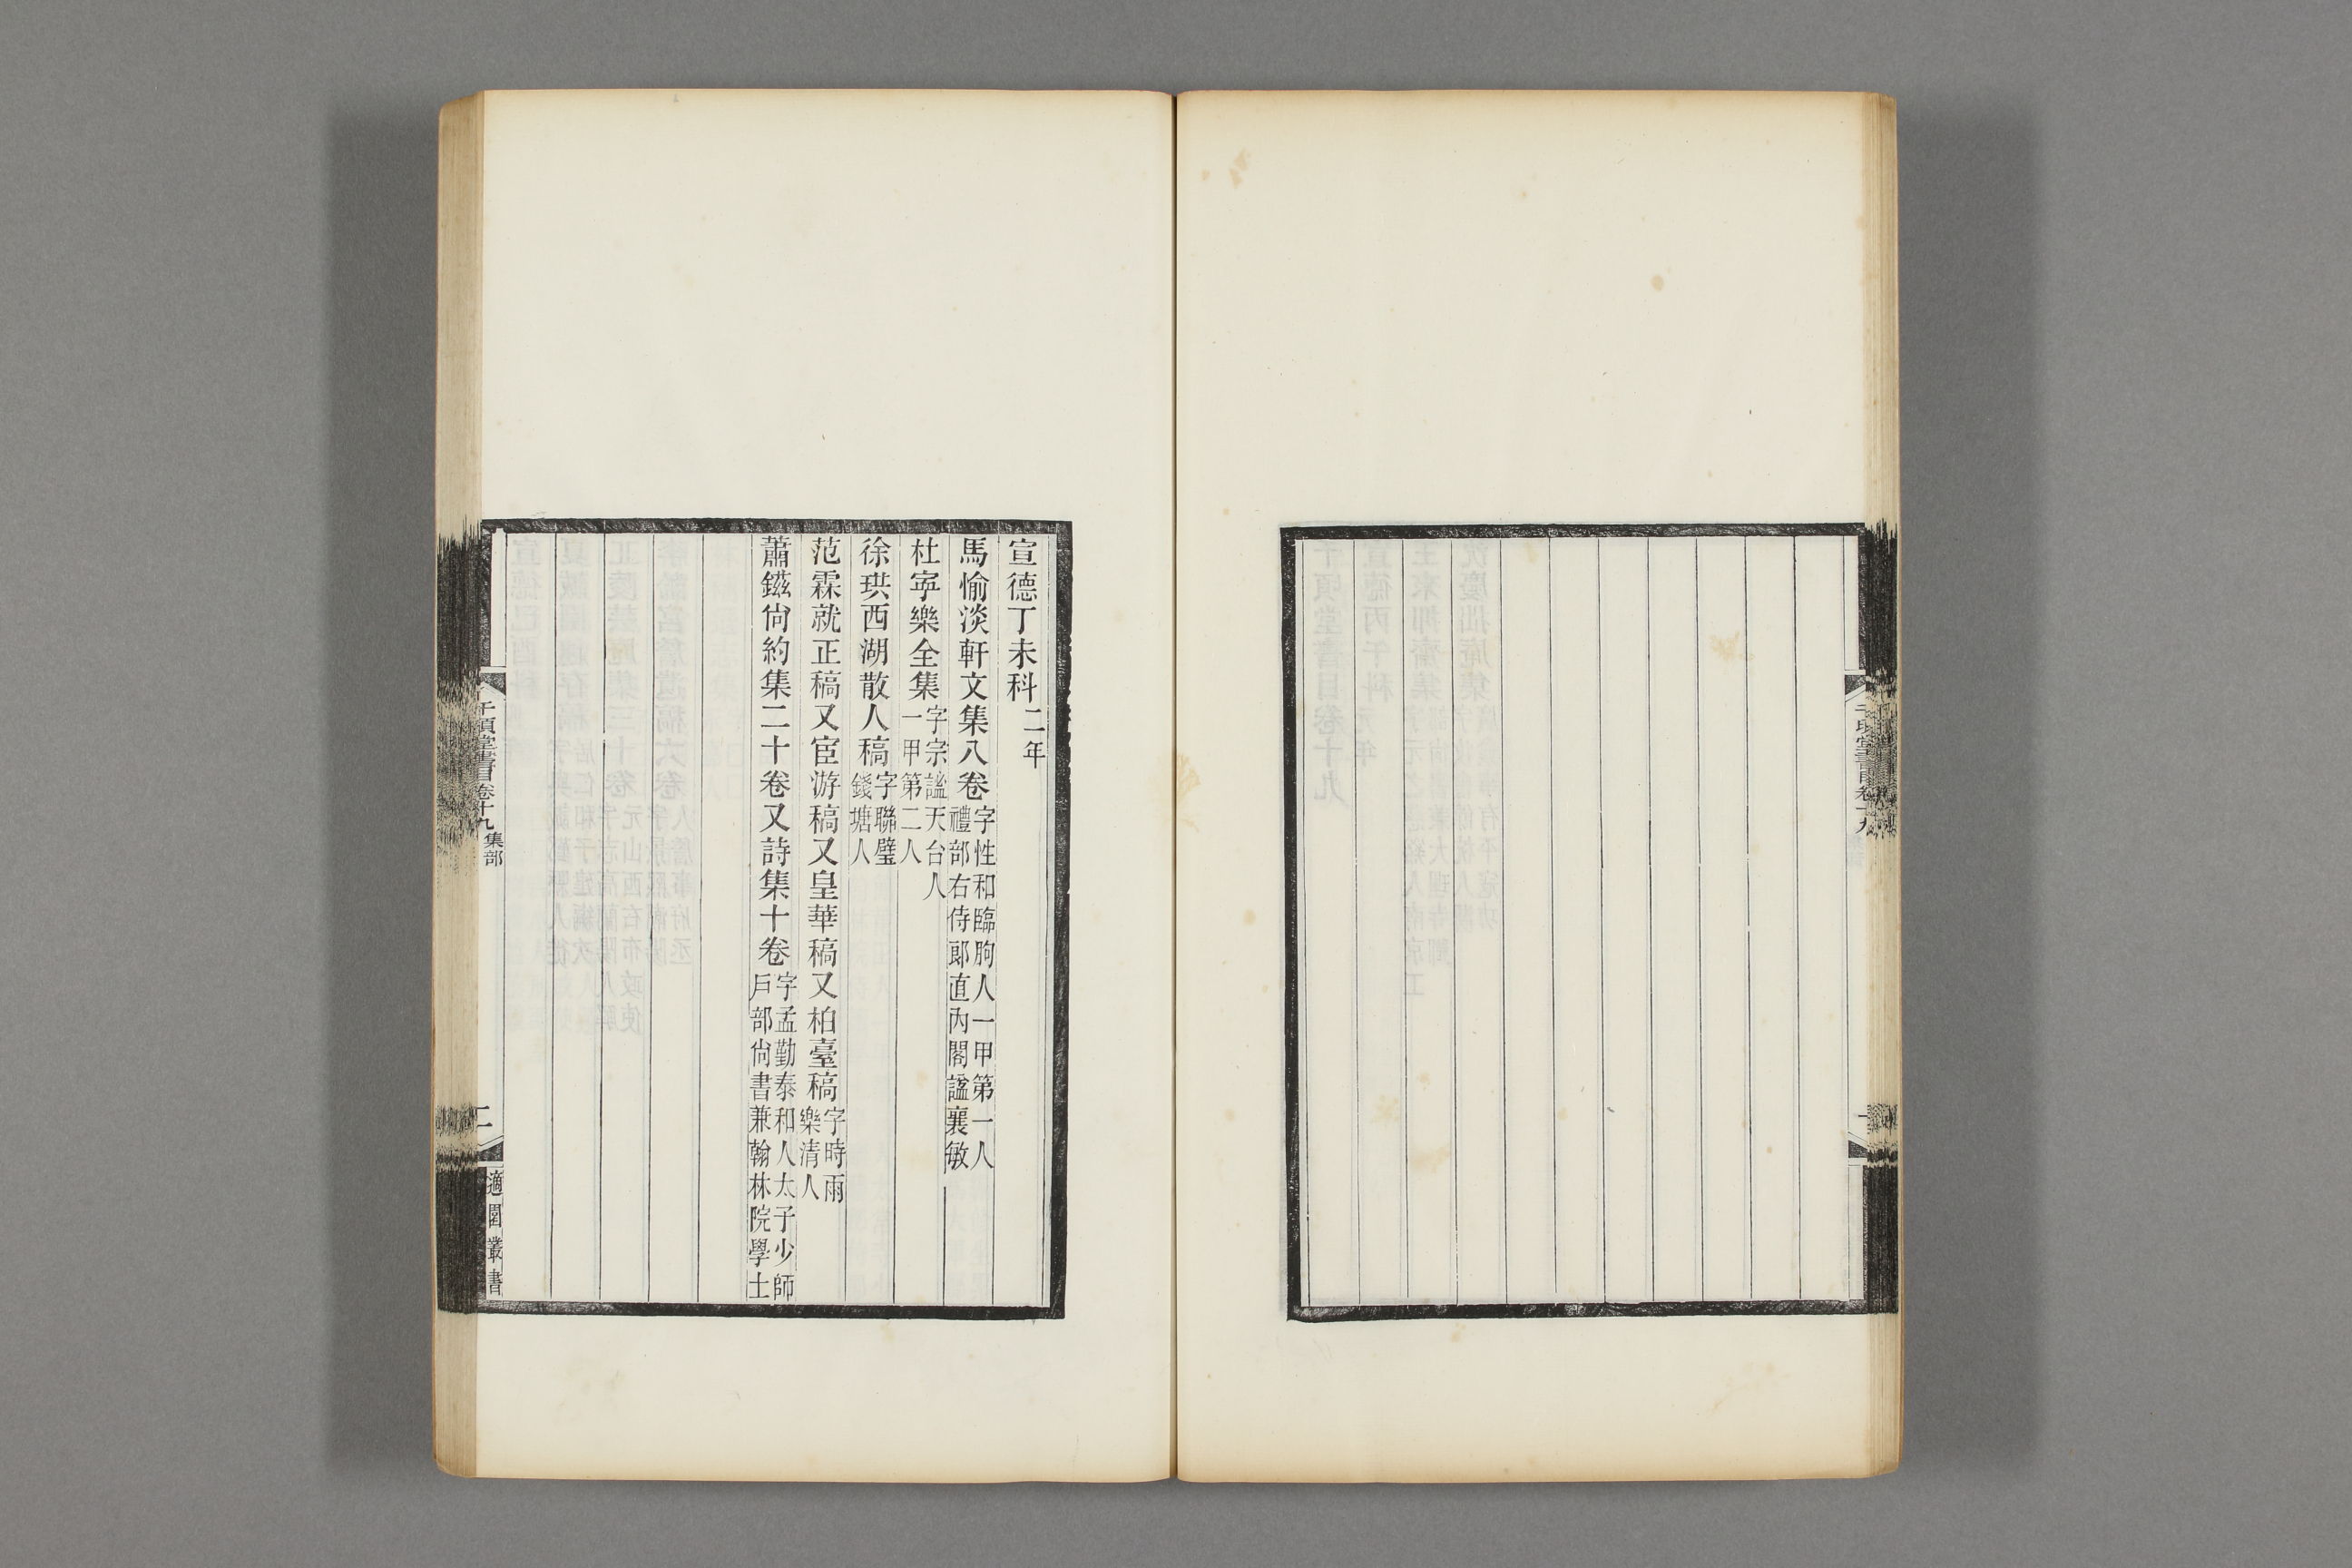 宣德丁未科二年
馬愉淡軒文集八卷字性和臨朐人一甲第一人禮部右侍郎直內閣謚襄敏
杜寧樂全集字宗謐天台人一甲第二人
徐珙西湖散人稿字聯璧錢塘人
范霖就正稿又宦游稿又皇華稿又柏臺稿字時雨樂清人
蕭鎡尙約集二十卷又詩集十卷字孟勤泰和人太子少師戶部尙書兼翰林院學士
千頃堂書目卷十九 集部
二
適園叢書